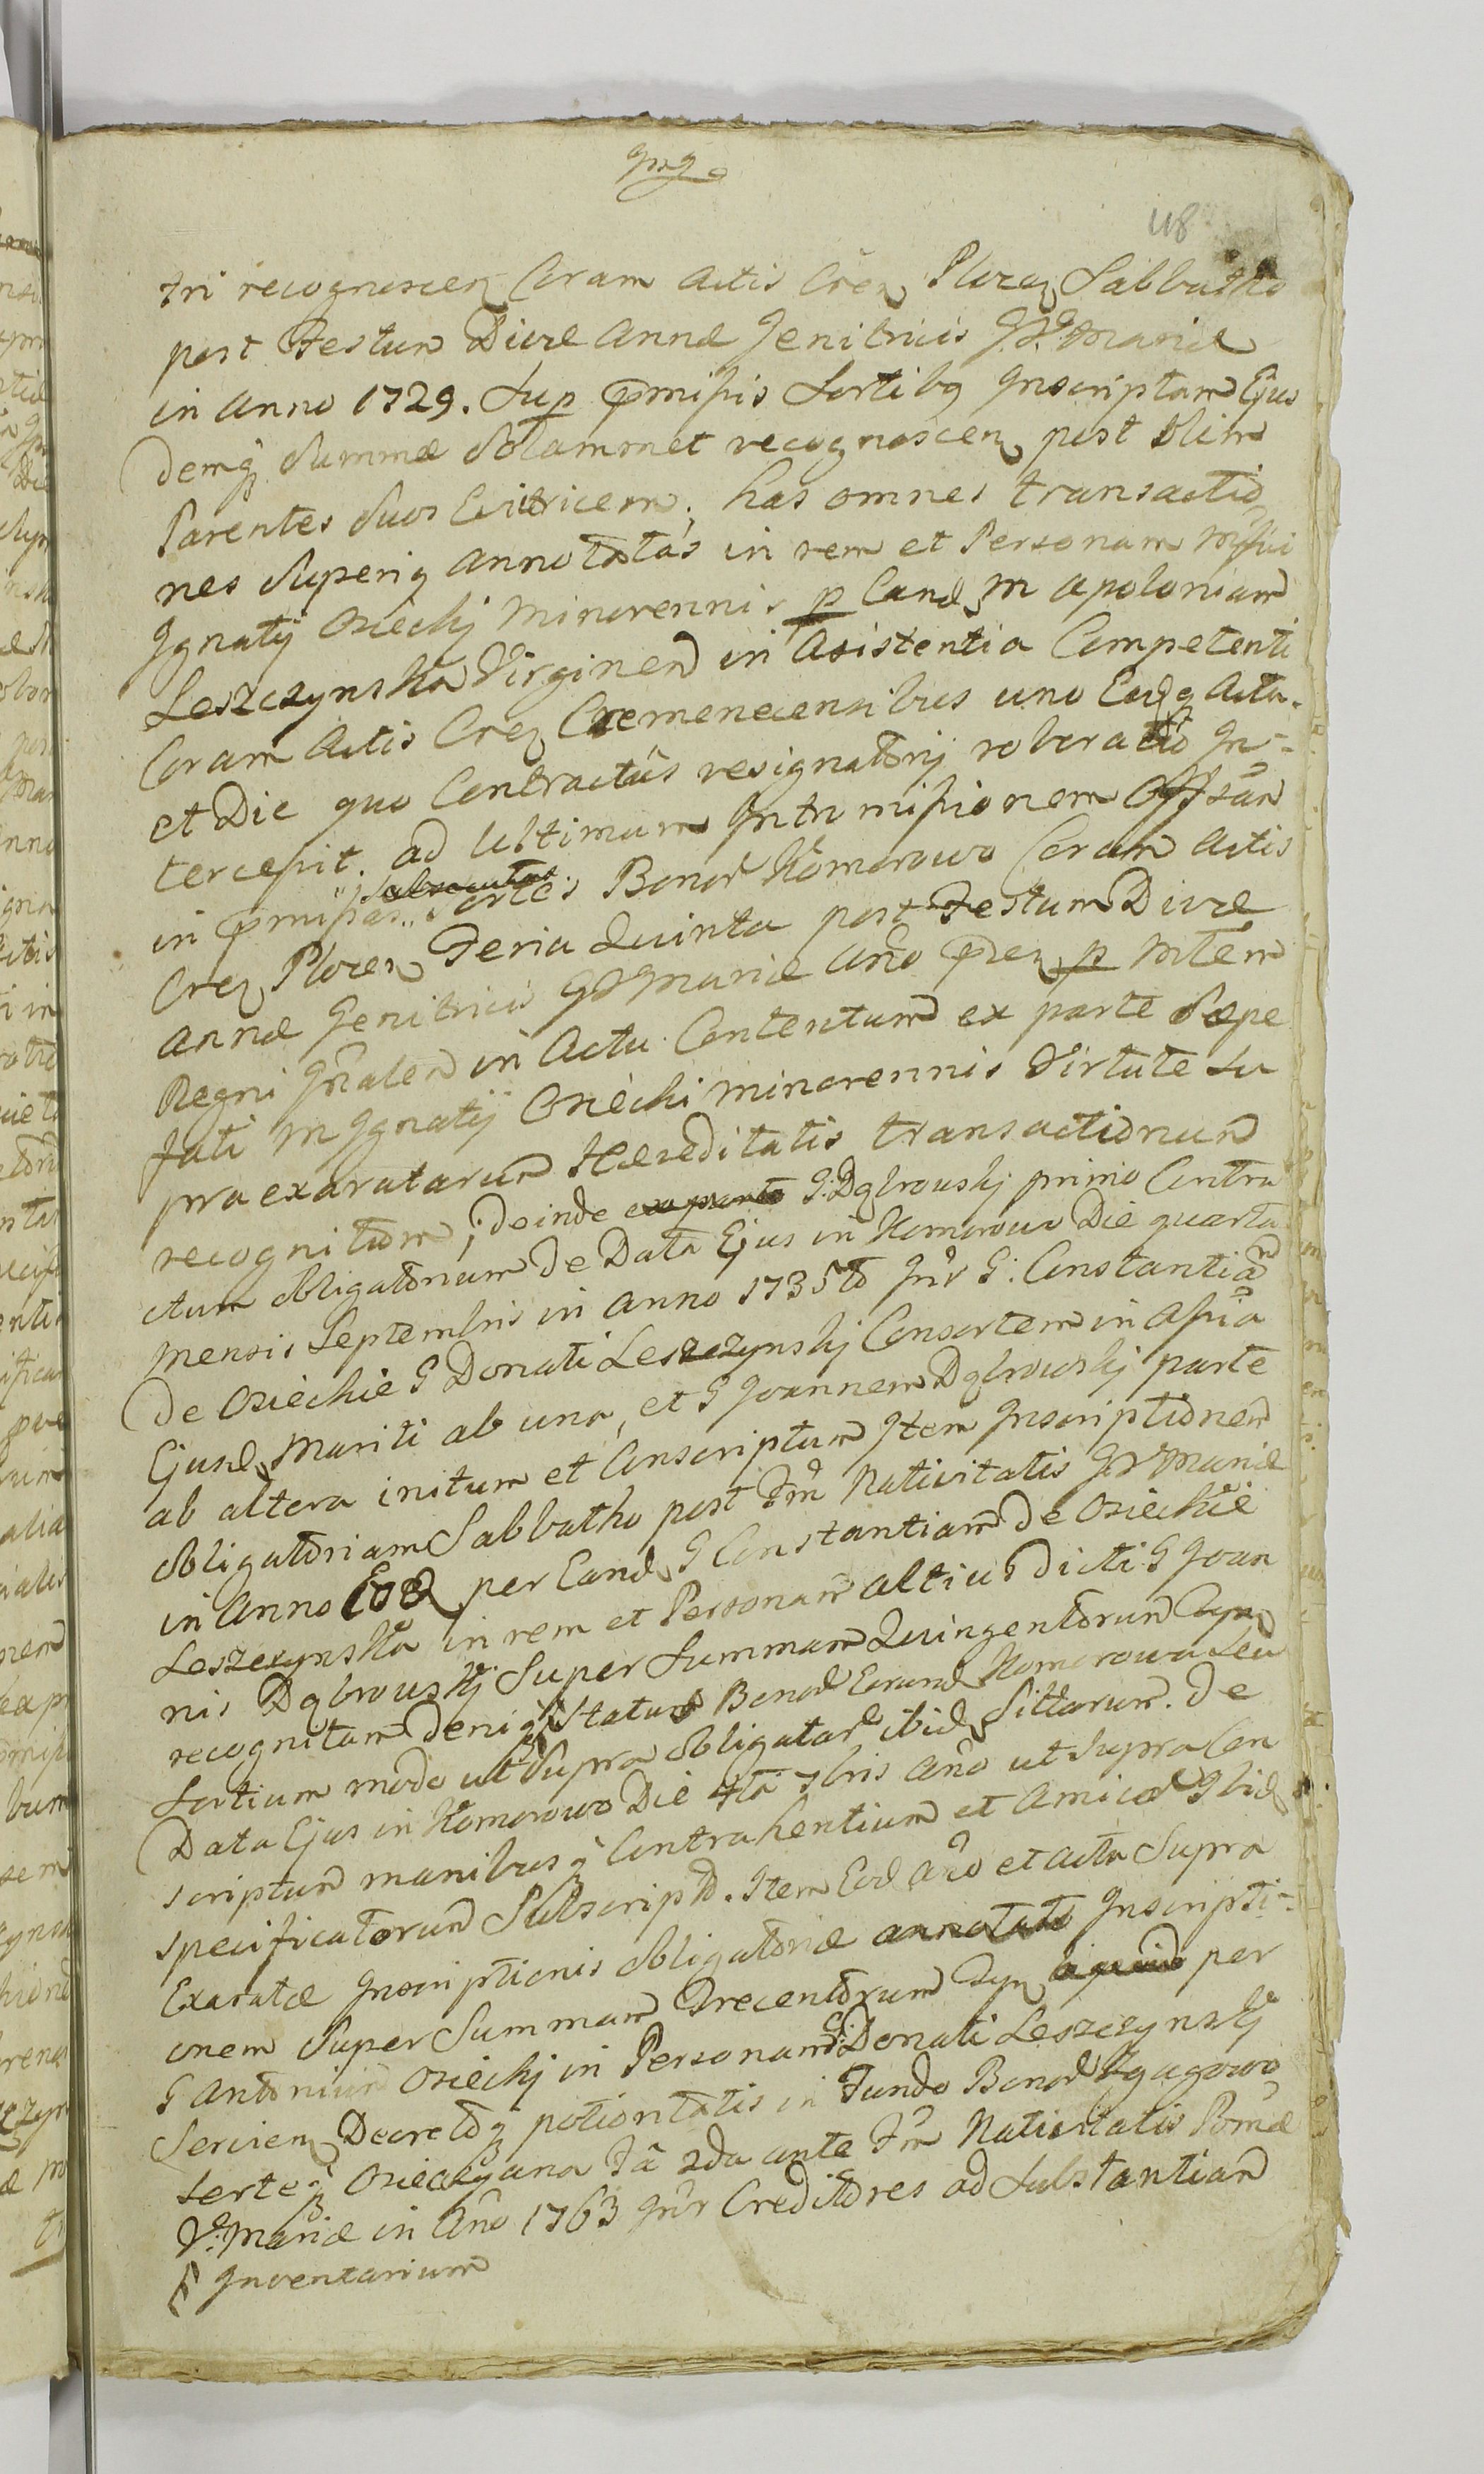 48
tri recognoscen Coram Actis Cren Plocen Sabbatho
post Festum Divæ Annæ Genitricis Mariæ
in Anno 1729. Sup pmissis Sortibq Inscriptam Ejus
demq Summæ Solammet recognoscen post olim
Parentes Suos Evitricem; has omnes transactio
nes Superiq Annotatas in rem et Personam
Ignatij Osiecky Minorennis p Eand M Apoloniam
Leszczynska Virginem in Asistentia Competenti
Coram Actis Cren Cremenecensibus uno Eodq Actu
et Die quo Contractus resignatorij roboratio In-
tercessit. ad Ultimum Intromissionem Offsam
in pmissas Sortes Bonor Komorowo Coram Actis
Cren Plocen Feria Quinta post Festum Divæ
Annæ Genitricis Mariæ Ano pren p Mrem
Regni Gnalem in Actu Contentum ex parte Sæpe
fati M Ignatij Osiecki Minorennis Virtute Su
pra exaratarum Hæreditatis transactionum
recognitum; Deinde G: Dąbrowskj primo Contra
ctum obligatorium De Data Ejus in Komorowo Die quarta
Mensis Septembris in Anno 1735to Intr G: Constantiam
de Osieckie G Donati Leszczynskj Consortem in Assia
Ejusd Mariti ab una, et G Joannem Dąbrowskj parte
ab altera initum et Conscriptum Item Inscriptionem
obligatoriam Sabbatho post Fm Nativitatis Mariæ
in Anno Eod per Eand G Constantiam de Osieckie
Leszczynska in rem et Personam altius dicti G Joan
nis Dąbrowskj Super Summam Quingentorum
recognitam deniq Statum Bonor Eorund Komorowo Seu
Sortium modo ut Supra obligatar ibid Sittarum. De
Data Ejus in Komorowo Die 4ta 7bris Ano ut Supra Con
scriptum manibusq Contrahentium et Amicor Ibid
Specificatorum Subscriptū. Item Eod Ano et Actu Supra
Exaratæ Inscriptionis obligatoriæ Inscripti-
onem Super Summam Trecentorum per
G Antonium Osieckj in Personam G: Donati Leszczynskj
Servien Decretoq potioritatis in Fundo Bonor
Sorteq Fa 2da ante Fm Nativitatis Bomæ
V: Mariæ in Ano 1763 Intr Creditores ad Substantiam
Inventarium